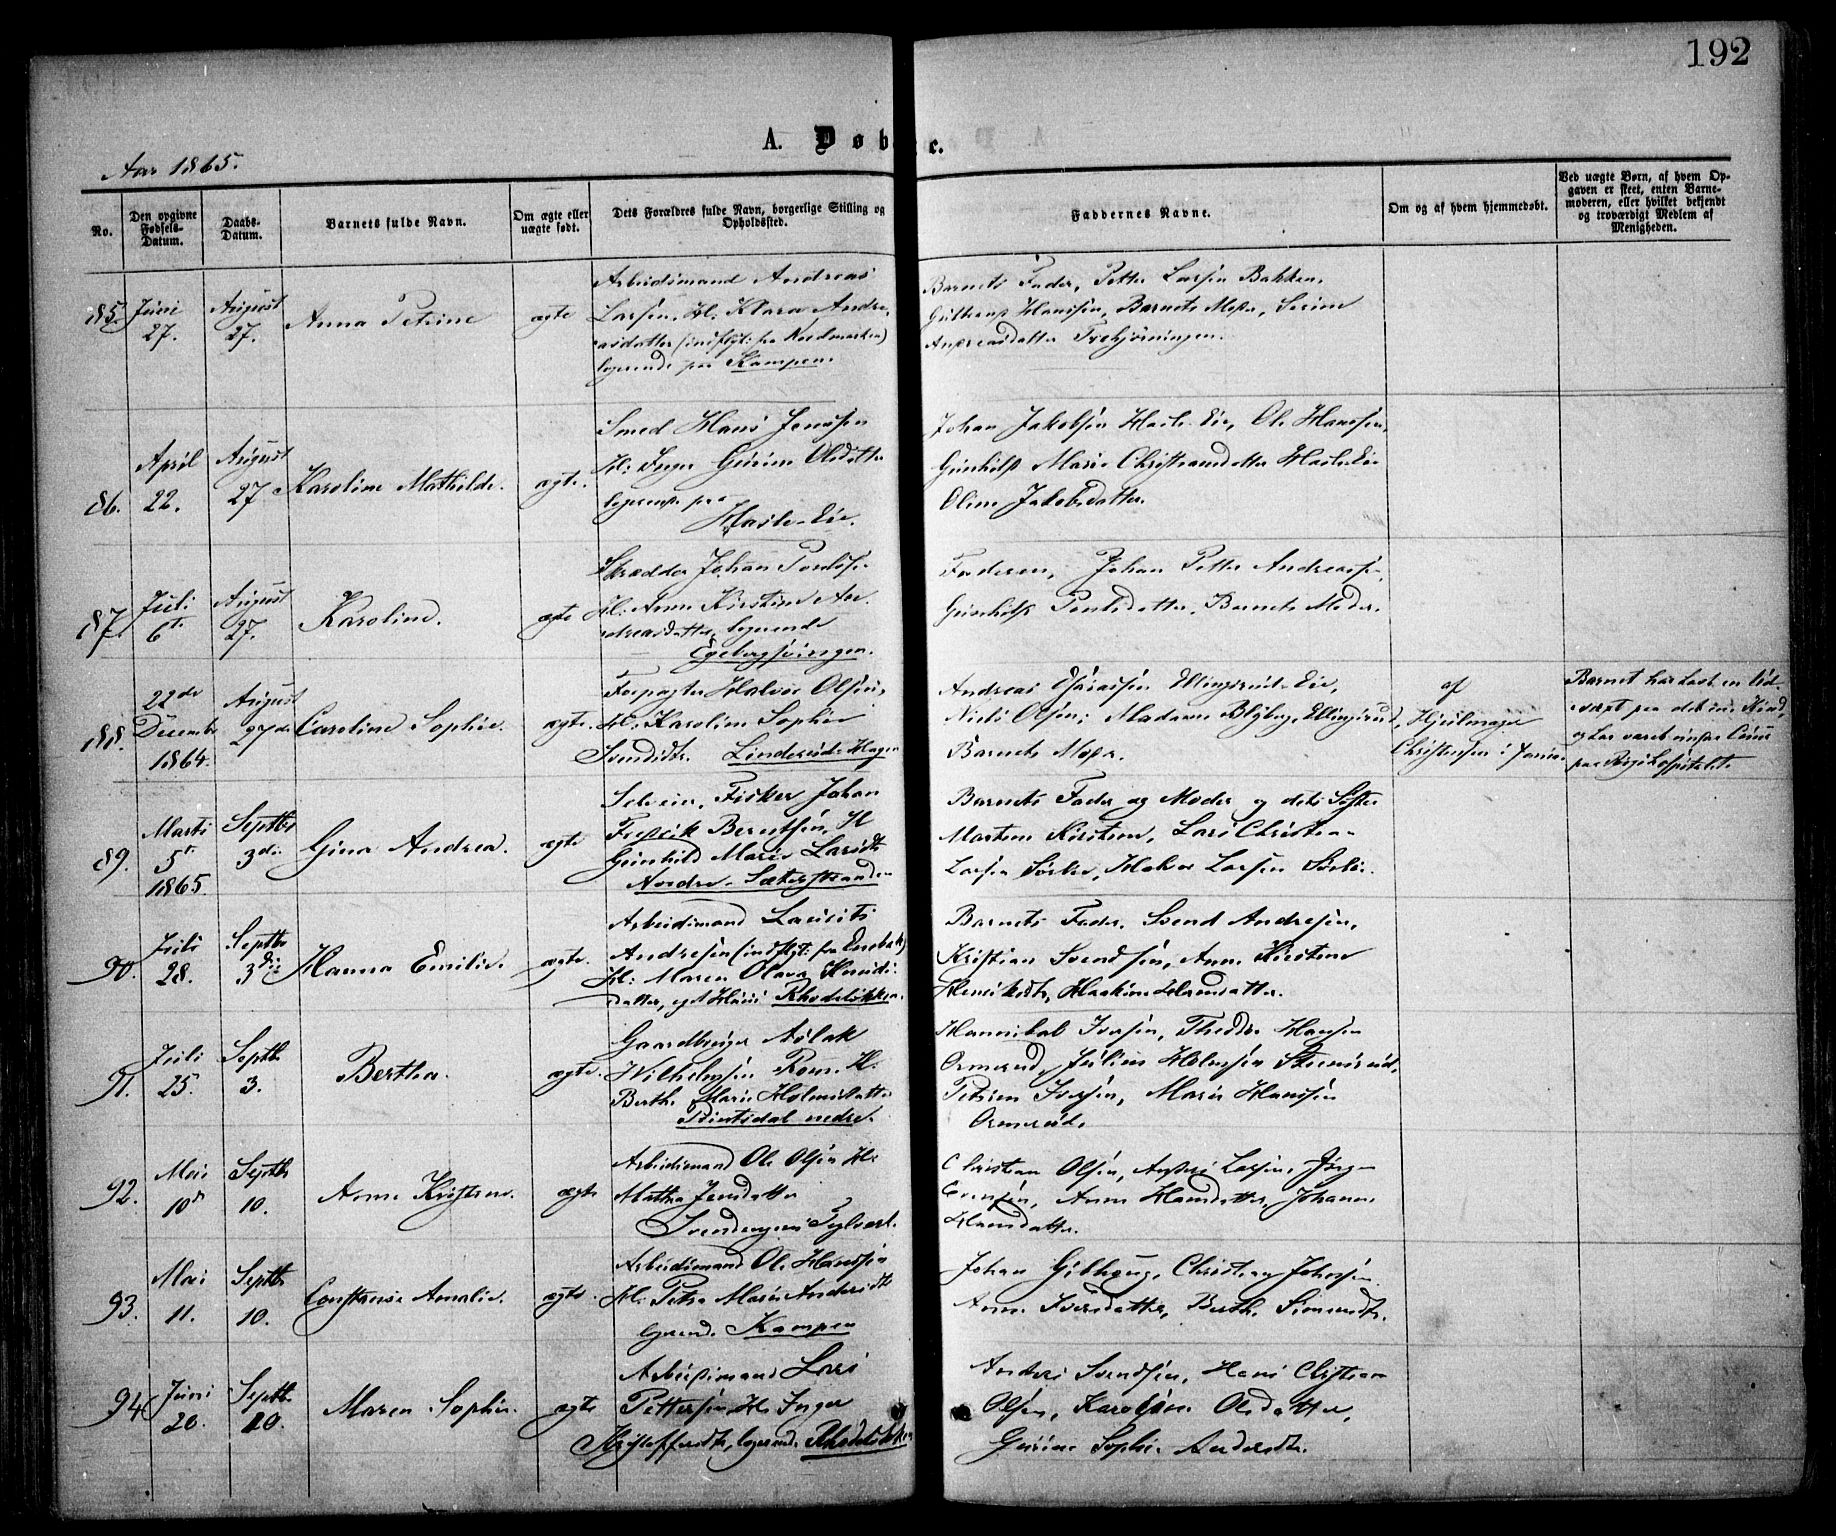 192
A. Døbte.
Aar 1865.
No.
Den opgivne
Fødsels-
Datum.
Daabs-
Datum.
Barnets fulde Navn.
Om ægte eller
uægte født.
Dets Forældres fulde Navn, borgerlige Stilling og
Opholdssted.
Faddernes Navne.
Om og af hvem hjemmedøbt.
Ved uægte Børn, af hvem Op-
gaven er skeet, enten Barne-
moderen, eller hvilket bekjendt
og troværdigt Medlem af
Menigheden.
85.
Juni
27.
August
27.
Anna Petrine
ægte
Arbeidsmand Andreas
Larsen, H. Klara Andre-
asdatter (indflyt: fra Nordmarken)
logerende paa Kampen.
Barnets Fader, Petter Larsen Bakken,
Hansen, Barnets Moder, Severine
Andreasdatter
86.
April
22.
August
27
Karoline Mathilde.
ægte.
Smed Hans Jensen
H: Inger Gurine Olsdatter
logerende paa
Hasle-Eie.
Johan Jakobsen Hasle-Eie, Ole Hanssen,
Gunhild Marie Christiansdatter Hasle-Eie
Oline Jakobsdatter.
87.
Juli
6te
August
27.
Karoline.
ægte
Skrædder Johan
H: Anne Kirstine An-
dreasdatter, logerende
Egebergsveiengen.
Faderen, Johan Petter Andreasse-,
Gunhild Paulsdatter, Barnets Moder.
88.
22de
Decembr
1864.
August
27de
Caroline Sophie.
ægte.
Forpagter Halvor Olsen,
H: Karoline Sophie
Svendsdtr. Linderud-Hagen
Andreas Ellingsrud-Eie,
Niels Olsen, Madame Blyberg, Ellingsrud,
Barnets Moder.
af
Christensen i
Barnet har havt en Ud-
væxt paa det ene Kind,
og har været under Cuur
paa Rigshospitalet.
89.
Marts
5te
1865
Septbr
3die
Gina Andrea.
ægte
Selveier, Fisker Johan
Fredrik Berntsen, H
Gunhild Marie Larsdtr
Nordre Sæterstranden
Barnets Fader og Moder og dets Søster
Marthe Kirstine, Lars Christian
Larsen Halvor Larsen
90.
Juli
28.
Septbr
3die
Hanna Emilie.
ægte.
Arbeidsmand Laurits
Andresen (indflyt: fra Enebak)
H: Maren Olava Knuds-
datter, eget Huus Rhodeløkken.
Barnets Fader, Svend Andresen,
Kristian Svendsen, Anne Kirstine
Henriksdtr, Hansdatter.
91.
Juli
25.
Septbr
3.
Bertha.
ægte.
Gaardbruger Aslak
Wilhelmsen Rom. H.
Berthe Marie Holmsdatter
nedre.
Hannibal Iversen, Theodor Hansen
Ormerud, Julius Holmsen Steensrud,
Petrea Iversen, Marie Hansen
Ormerud.
92.
Mai
10de
Septbr
10.
Anne Kristine.
ægte
Arbeidsmand Ole Olsen H:
Mathea Jensdatter
Svendengens
Christian Olsen, Andres Larsen, Jørgen
Evensen, Anne Hansdatter, Johanne
Hansdatter.
93.
Mai
11.
Septbr
10.
Constanse Amalie.
ægte.
Arbeidsmand Ole Hansen
H: Petra Marie Andersdtr
logerende Kampen
Johan Christian Johnsen
Anne Iversdatter, Berthe Simensdtr.
94
Juni
20.
Septbr
10.
Maren Sophie.
ægte
Arbeidsmand Lars
Pettersen, H. Inger
Kristoffersdtr, logerende Rhodeløkken
Anders Svendsen, Hans Christian
Olsen, Karoline Olsdatter,
Gurine Sophie Andersdtr.